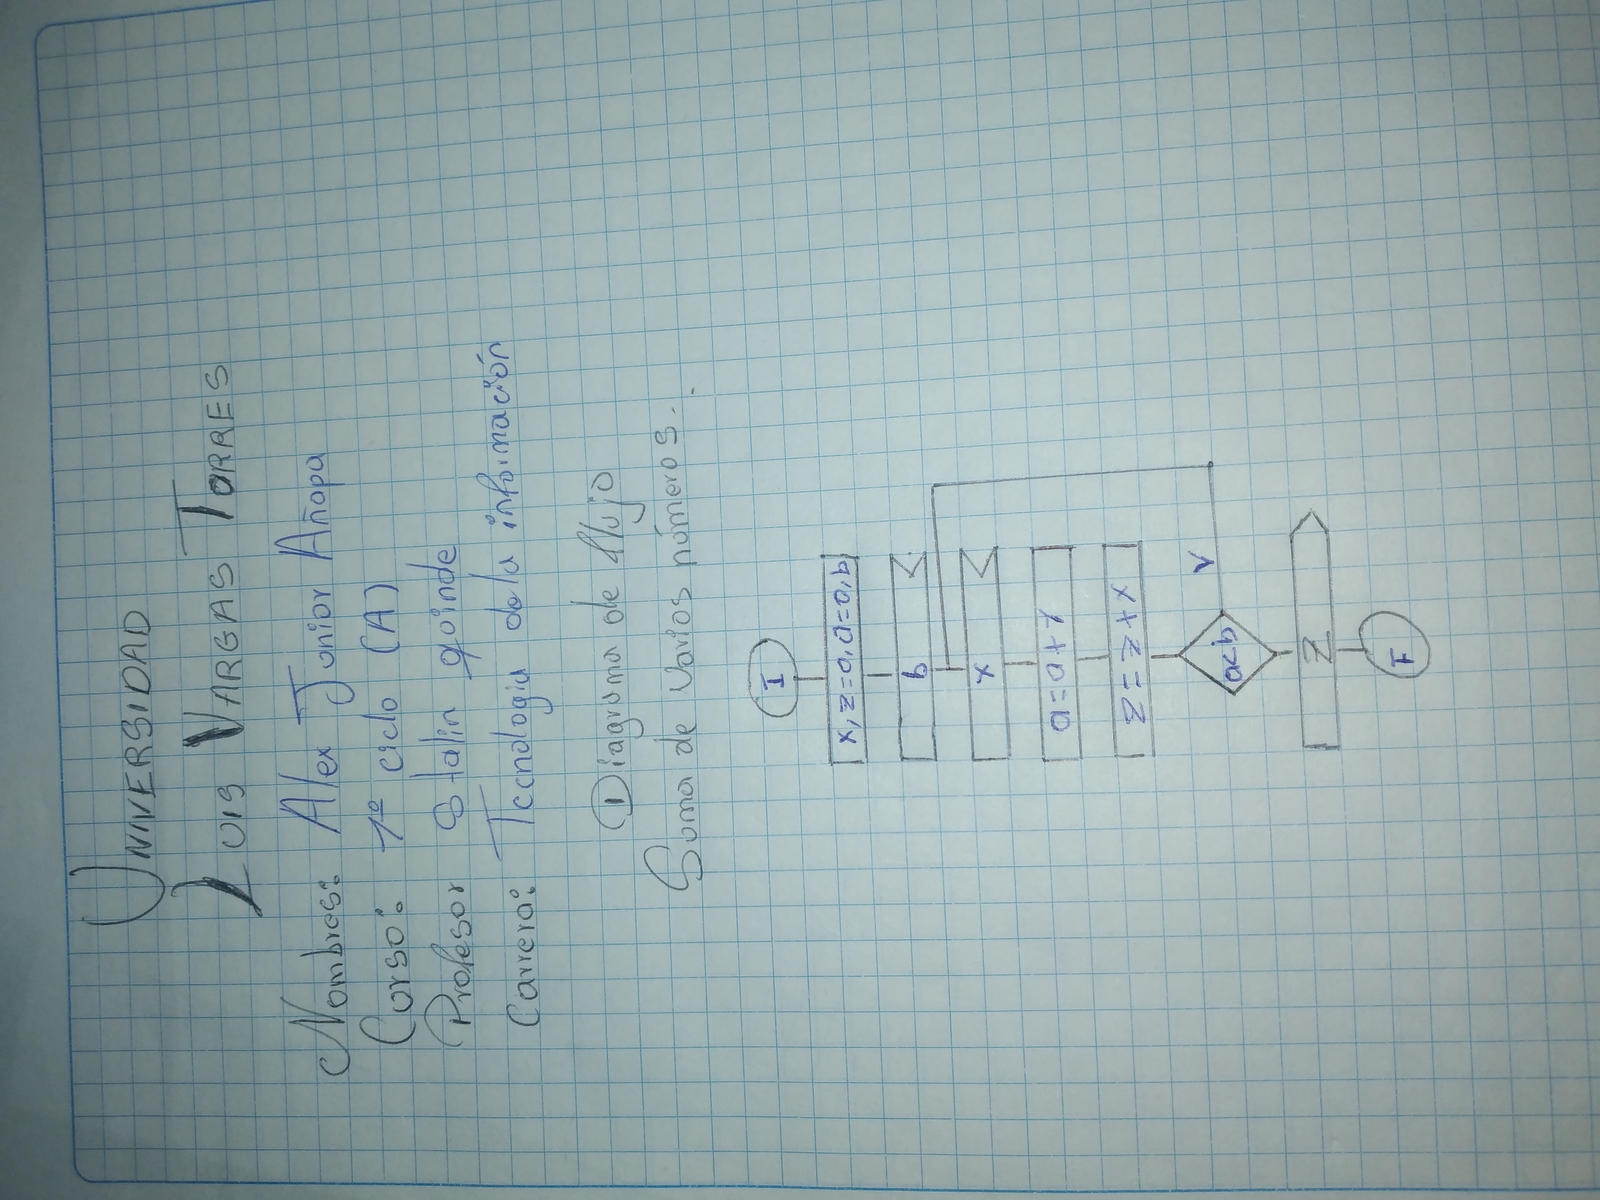 UNIVERSIDAD
LUIS VARGAS TORRES
Nombres: Alex Junior Añapa
Curso: 1º ciclo (A)
Profesor Stalin quinde
Carrera: Tecnologia de la información
Diagrama de flujo
Suma de varios números.
I
x, z=0, a=0, b
b
x
a=a+1
z=z+x
a<b
V
Z
F